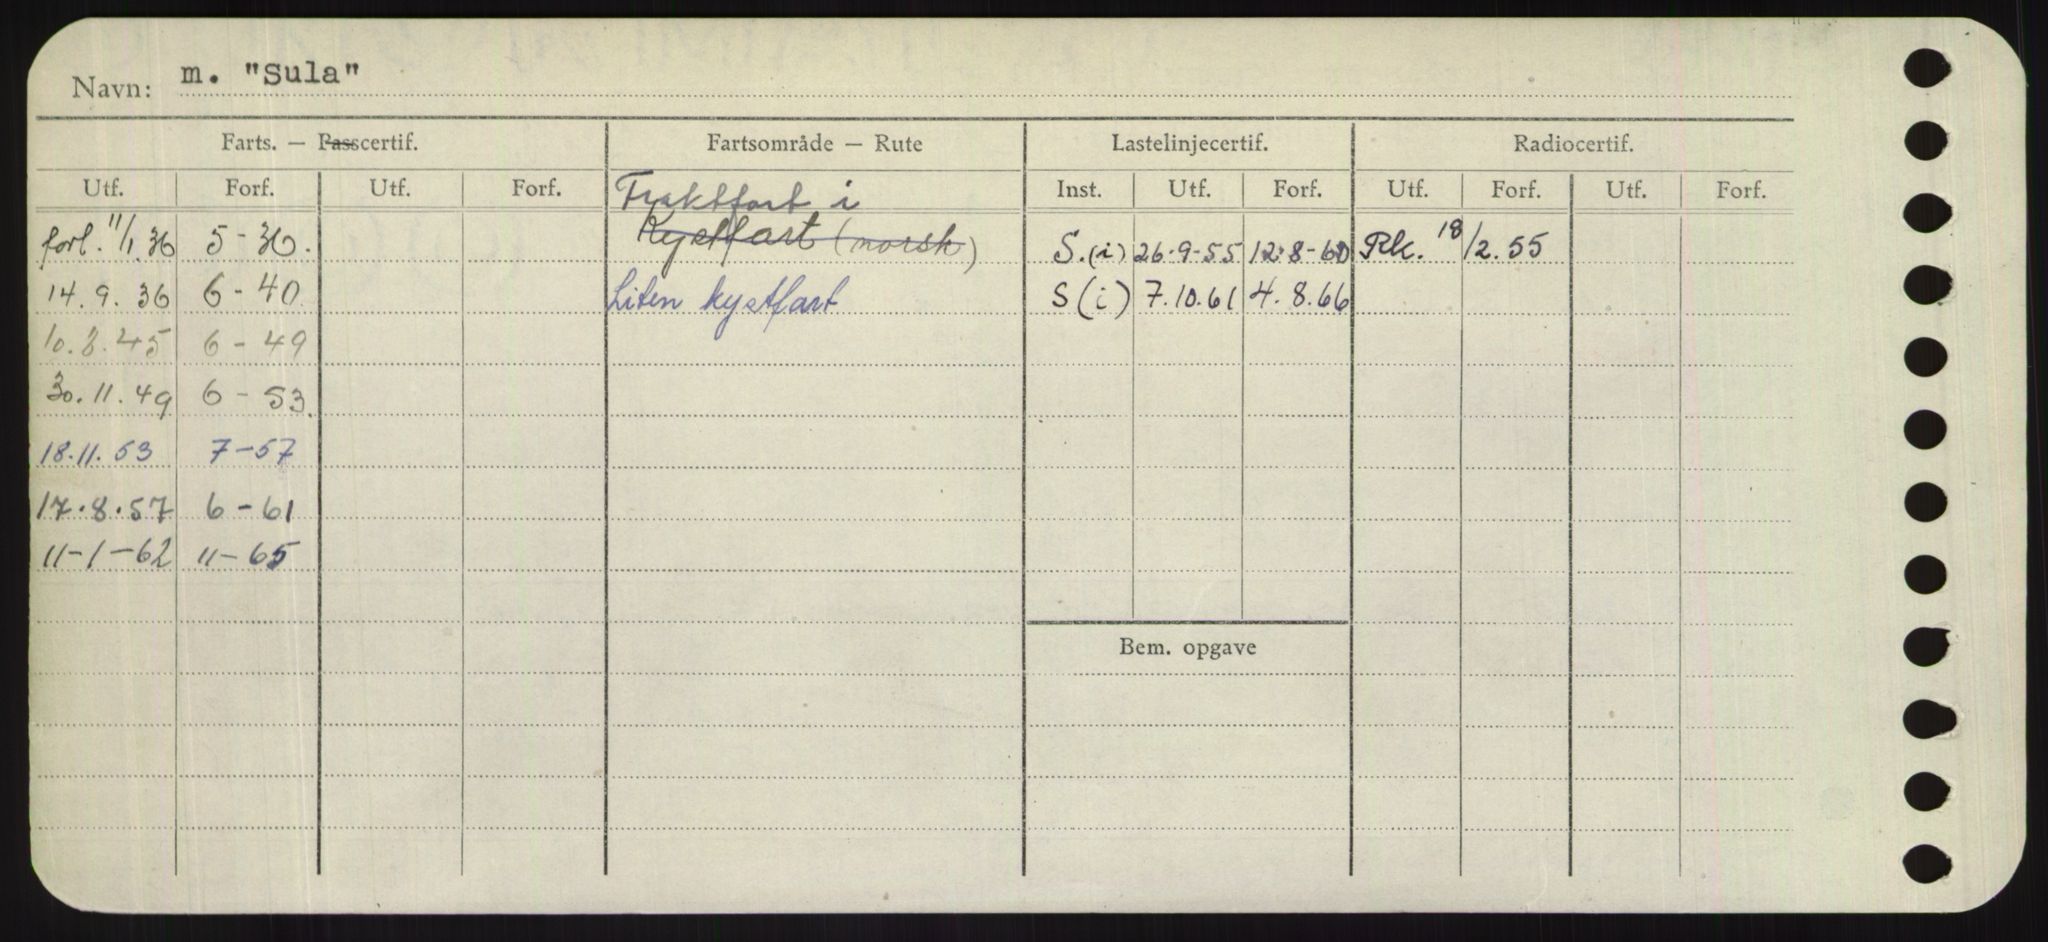 Navn: m. "Sula"
Farts. — Passcertif. Fartsområde — Rute Lastelinjecertif. Radiocertif.
Utf. Forf. Utf. Forf. Fraktfart i Inst. Utf. Forf. Utf. Forf. Utf. Forf.
forl. 11/1 36 5 - 36. Kystfart (norsk) S.(i) 26-9-55 12-8-60 Rk. 18/2.55
14.9.36 6 - 40 Liten kystfart S(i) 7.10.61 4.8.66
10.8.45 6 - 49
30.11.49 6 - 53
18.11.53 7 - 57
17.8.57 6 - 61
11-1-62 11 - 65
Bem. opgave